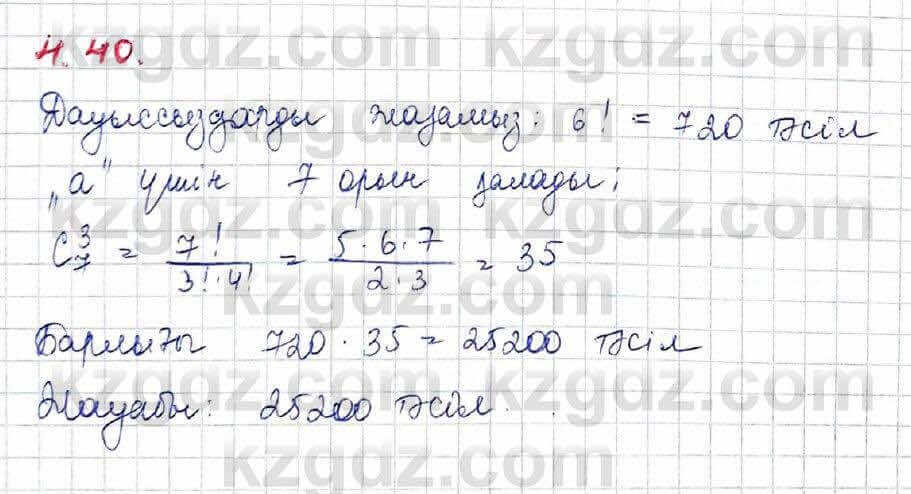 4.40.
Дауыссыздарды жазамыз: 6! = 720 тәсіл
„а" үшін 7 орын қалады;
C₇³ = 7!/(3!·4!) = (5·6·7)/(2·3) = 35
Барлығы 720 · 35 = 25200 тәсіл
Жауабы: 25200 тәсіл.
kzgdz.com kzgdz.com
kzgdz.com kzgdz.com
kzgdz.com kzgdz.com
kzgdz.com kzgdz.com
kzgdz.com kzgdz.com